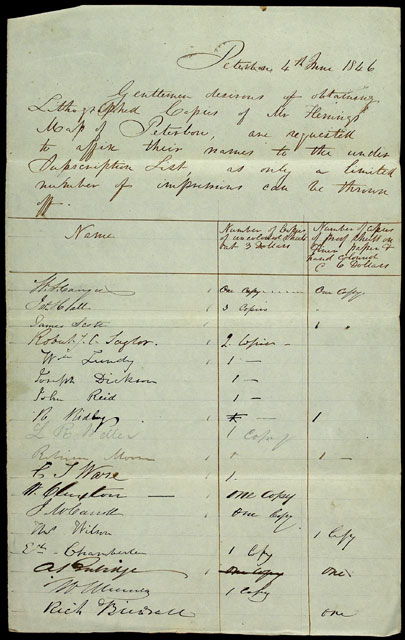 Peterboro 4th June 1846
Gentlemen desirous of obtaining
Lithographed Copies of Mr Fleming's
Map of Peterboro, are requested
to affix their names to the under
Subscription List, as only a limited
number of impressions can be thrown
off.
Name
Number of Copies of uncoloured sheets at 3 Dollars
Number of Copies of proof sheets on paper & hand coloured @ 6 Dollars
One Copy One Copy
3 Copies
James Scott 1
Robert J. C. Taylor. 2 Copies
Wm Lundy 1 —
Joseph Dickson 1 —
John Reid 1 —
R Ridley 1
1 Copy
Robinson Moore 1 —
C. J. Ware 1
W. Cluxton — one Copy
J McCarroll one Copy
Thos Wilson 1 Copy
Chamberlen 1 Copy
one Copy one
1 Copy
Rich Birdsall one